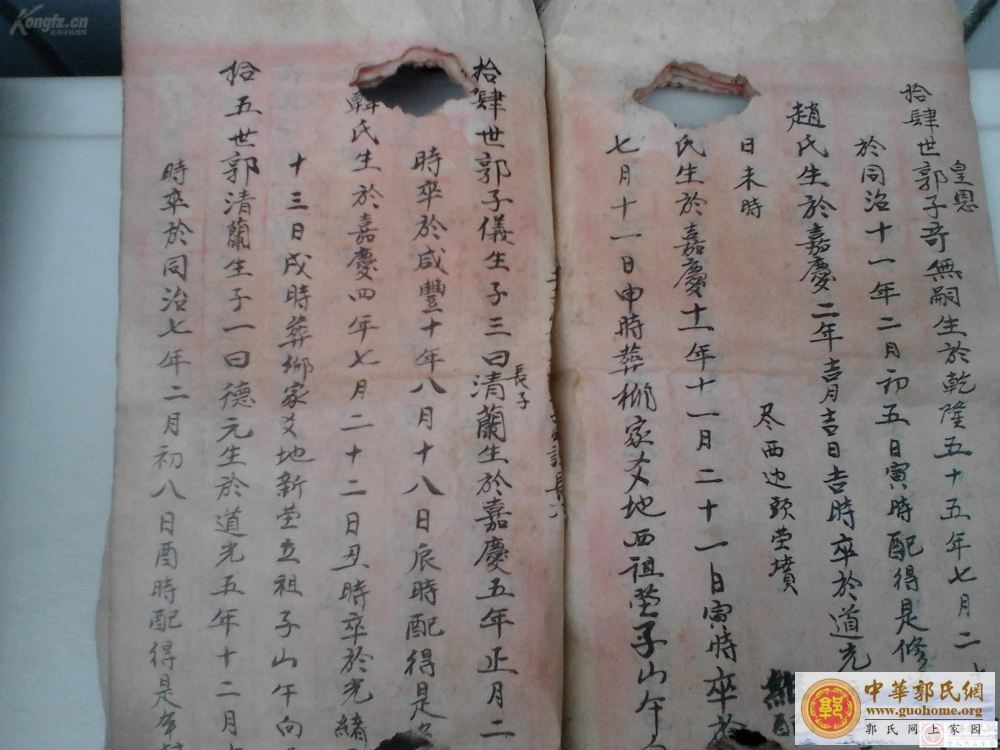 皇恩
拾肆世郭子奇無嗣生於乾隆五十五年七月二
於同治十一年二月初五日寅時配得是修
趙氏生於嘉慶二年吉月吉日吉時卒於道光
日未時
尽西边頭塋墳
氏生於嘉慶十一年十一月二十一日寅時卒於
七月十一日申時葬柳家义地西祖塋子山午
拾肆世郭子儀生子三曰清蘭生於嘉慶五年正月二
長子
時卒於咸豐十年八月十八日辰時配得是
韓氏生於嘉慶四年七月二十二日丑時卒於光緒
十三日戌時葬柳家义地新塋立祖子山午向
拾五世郭清蘭生子一曰德元生於道光五年十二月
時卒於同治七年二月初八日酉時配得是
Kongfz.cn
孔夫子旧书网
中華郭氏網
www.guohome.org
郭氏网上家园